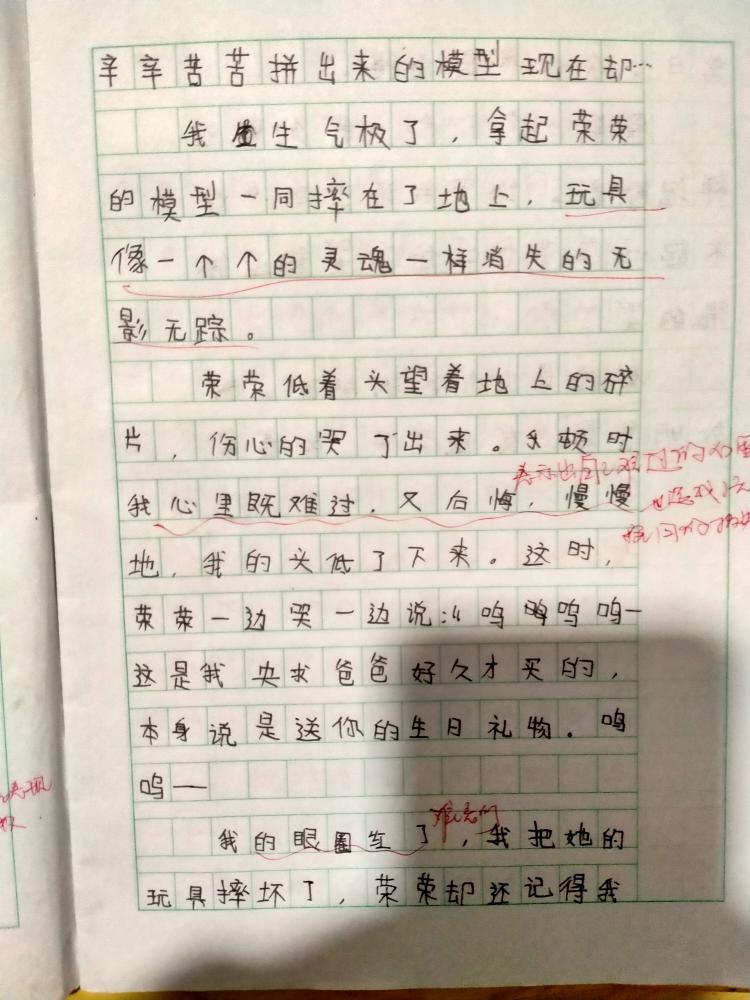 辛辛苦苦拼出来的模型现在却…
我生气极了，拿起荣荣
的模型一同摔在了地上，玩具
像一个个的灵魂一样消失的无
影无踪。
荣荣低着头望着地上的碎
片，伤心的哭了出来。顿时
我心里既难过，又后悔，慢慢
地，我的头低了下来。这时，
荣荣一边哭一边说:“呜呜呜呜一
这是我央求爸爸好久才买的，
本身说是送你的生日礼物。呜
呜——
我的眼圈红了，我把她的
玩具摔坏了，荣荣却还记得我